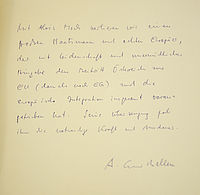 Mit Alois Mock verlieren wir einen
großen Staatsmann und echten Europäer,
der mit Leidenschaft und unermüdlicher
Hingabe den Beitritt Österreichs zur
EU (damals noch EG) und die
europäische Integration insgesamt voran-
getrieben hat. Seine Überzeugung gab
ihm die notwendige Kraft und Ausdauer.
A. Van der Bellen